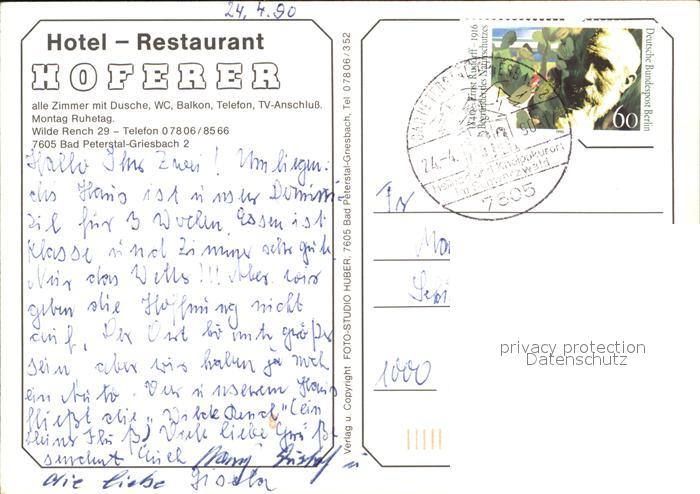 24.4.90
Hotel – Restaurant
HOFERER
alle Zimmer mit Dusche, WC, Balkon, Telefon, TV-Anschluß.
Montag Ruhetag.
Wilde Rench 29 – Telefon 0 78 06 / 85 66
7605 Bad Peterstal-Griesbach 2
Hallo Ihr Zwei! Umliegen-
des Haus ist unser Domi-
zil für 3 Wochen. Essen ist
Klasse und Zimmer sehr gut.
Nur das Wetter!!! Aber wir
geben die Hoffnung nicht
auf. Der Ort könnte größer
sein aber wir haben ja noch
ein Auto. Vor unserem Haus
fließt die „Wilde Rench" (ein
kleiner Fluß) Viele liebe Grüße
sendet Euch
die liebe Gisela
Verlag u. Copyright FOTO-STUDIO HUBER, 7605 Bad Peterstal-Griesbach, Tel 0 78 06 / 3 52
1840 · Ernst Rudorff · 1916
Begründer des Naturschutzes
Deutsche Bundespost Berlin
60
24.-4. 90
Heil- und Kneippkurort
im Schwarzwald
7605
1000
privacy protection
Datenschutz